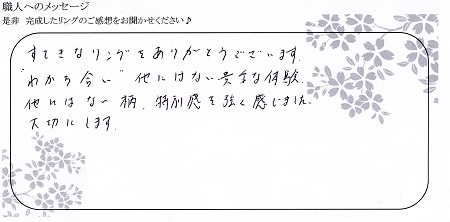 職人へのメッセージ
是非 完成したリングのご感想をお聞かせください♪
すてきなリングをありがとうございます.
"わかち合い" 他にはない貴重な体験.
他にはない柄、特別感を強く感じました.
大切にします.